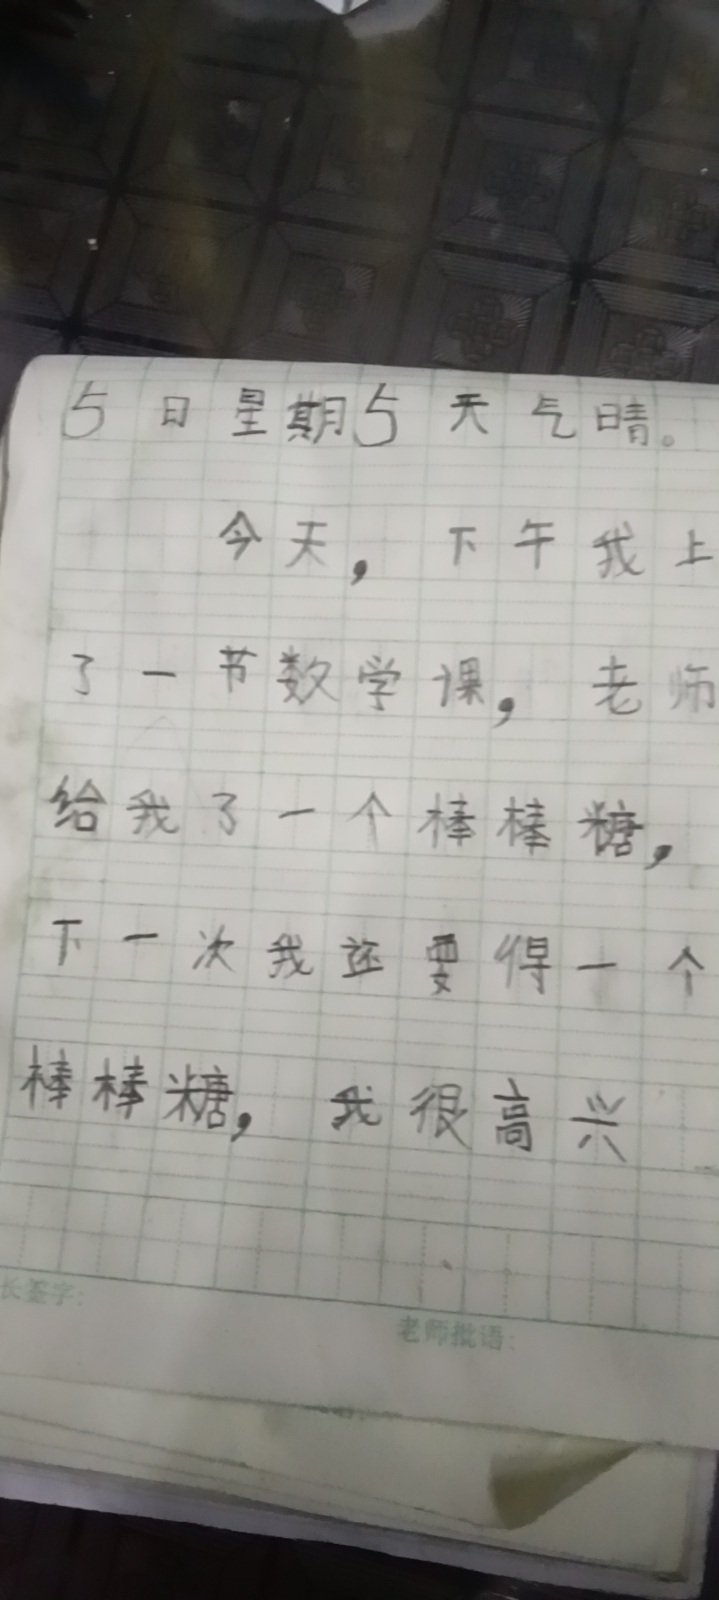 5日星期5天气晴。
今天，下午我上
了一节数学课，老师
给我了一个棒棒糖，
下一次我还要得一个
棒棒糖，我很高兴
长签字：
老师批语：